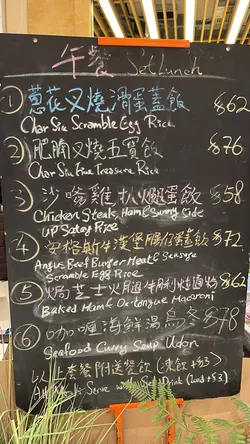 午餐 Set Lunch
① 蔥花叉燒滑蛋蓋飯 $62
Char Siu Scramble Egg Rice
② 肥閹叉燒五寶飯 $76
Char Siu Five Treasure Rice
③ 沙嗲雞扒火腿蛋飯 $58
Chicken Steak, Ham & Sunny side
up Satay Rice
④ 安格斯牛漢堡腸仔蛋飯 $72
Angus Beef Burger Meat & Sausage
Scramble Egg Rice
⑤ 焗芝士火腿牛脷通粉 $62
Baked Ham & Ox-tongue Macaroni
⑥ 咖喱海鮮湯烏冬 $78
Seafood Curry Soup Udon
以上套餐附送餐飲 (凍飲+$3)
Serve with Set Drink (Cold +$3)